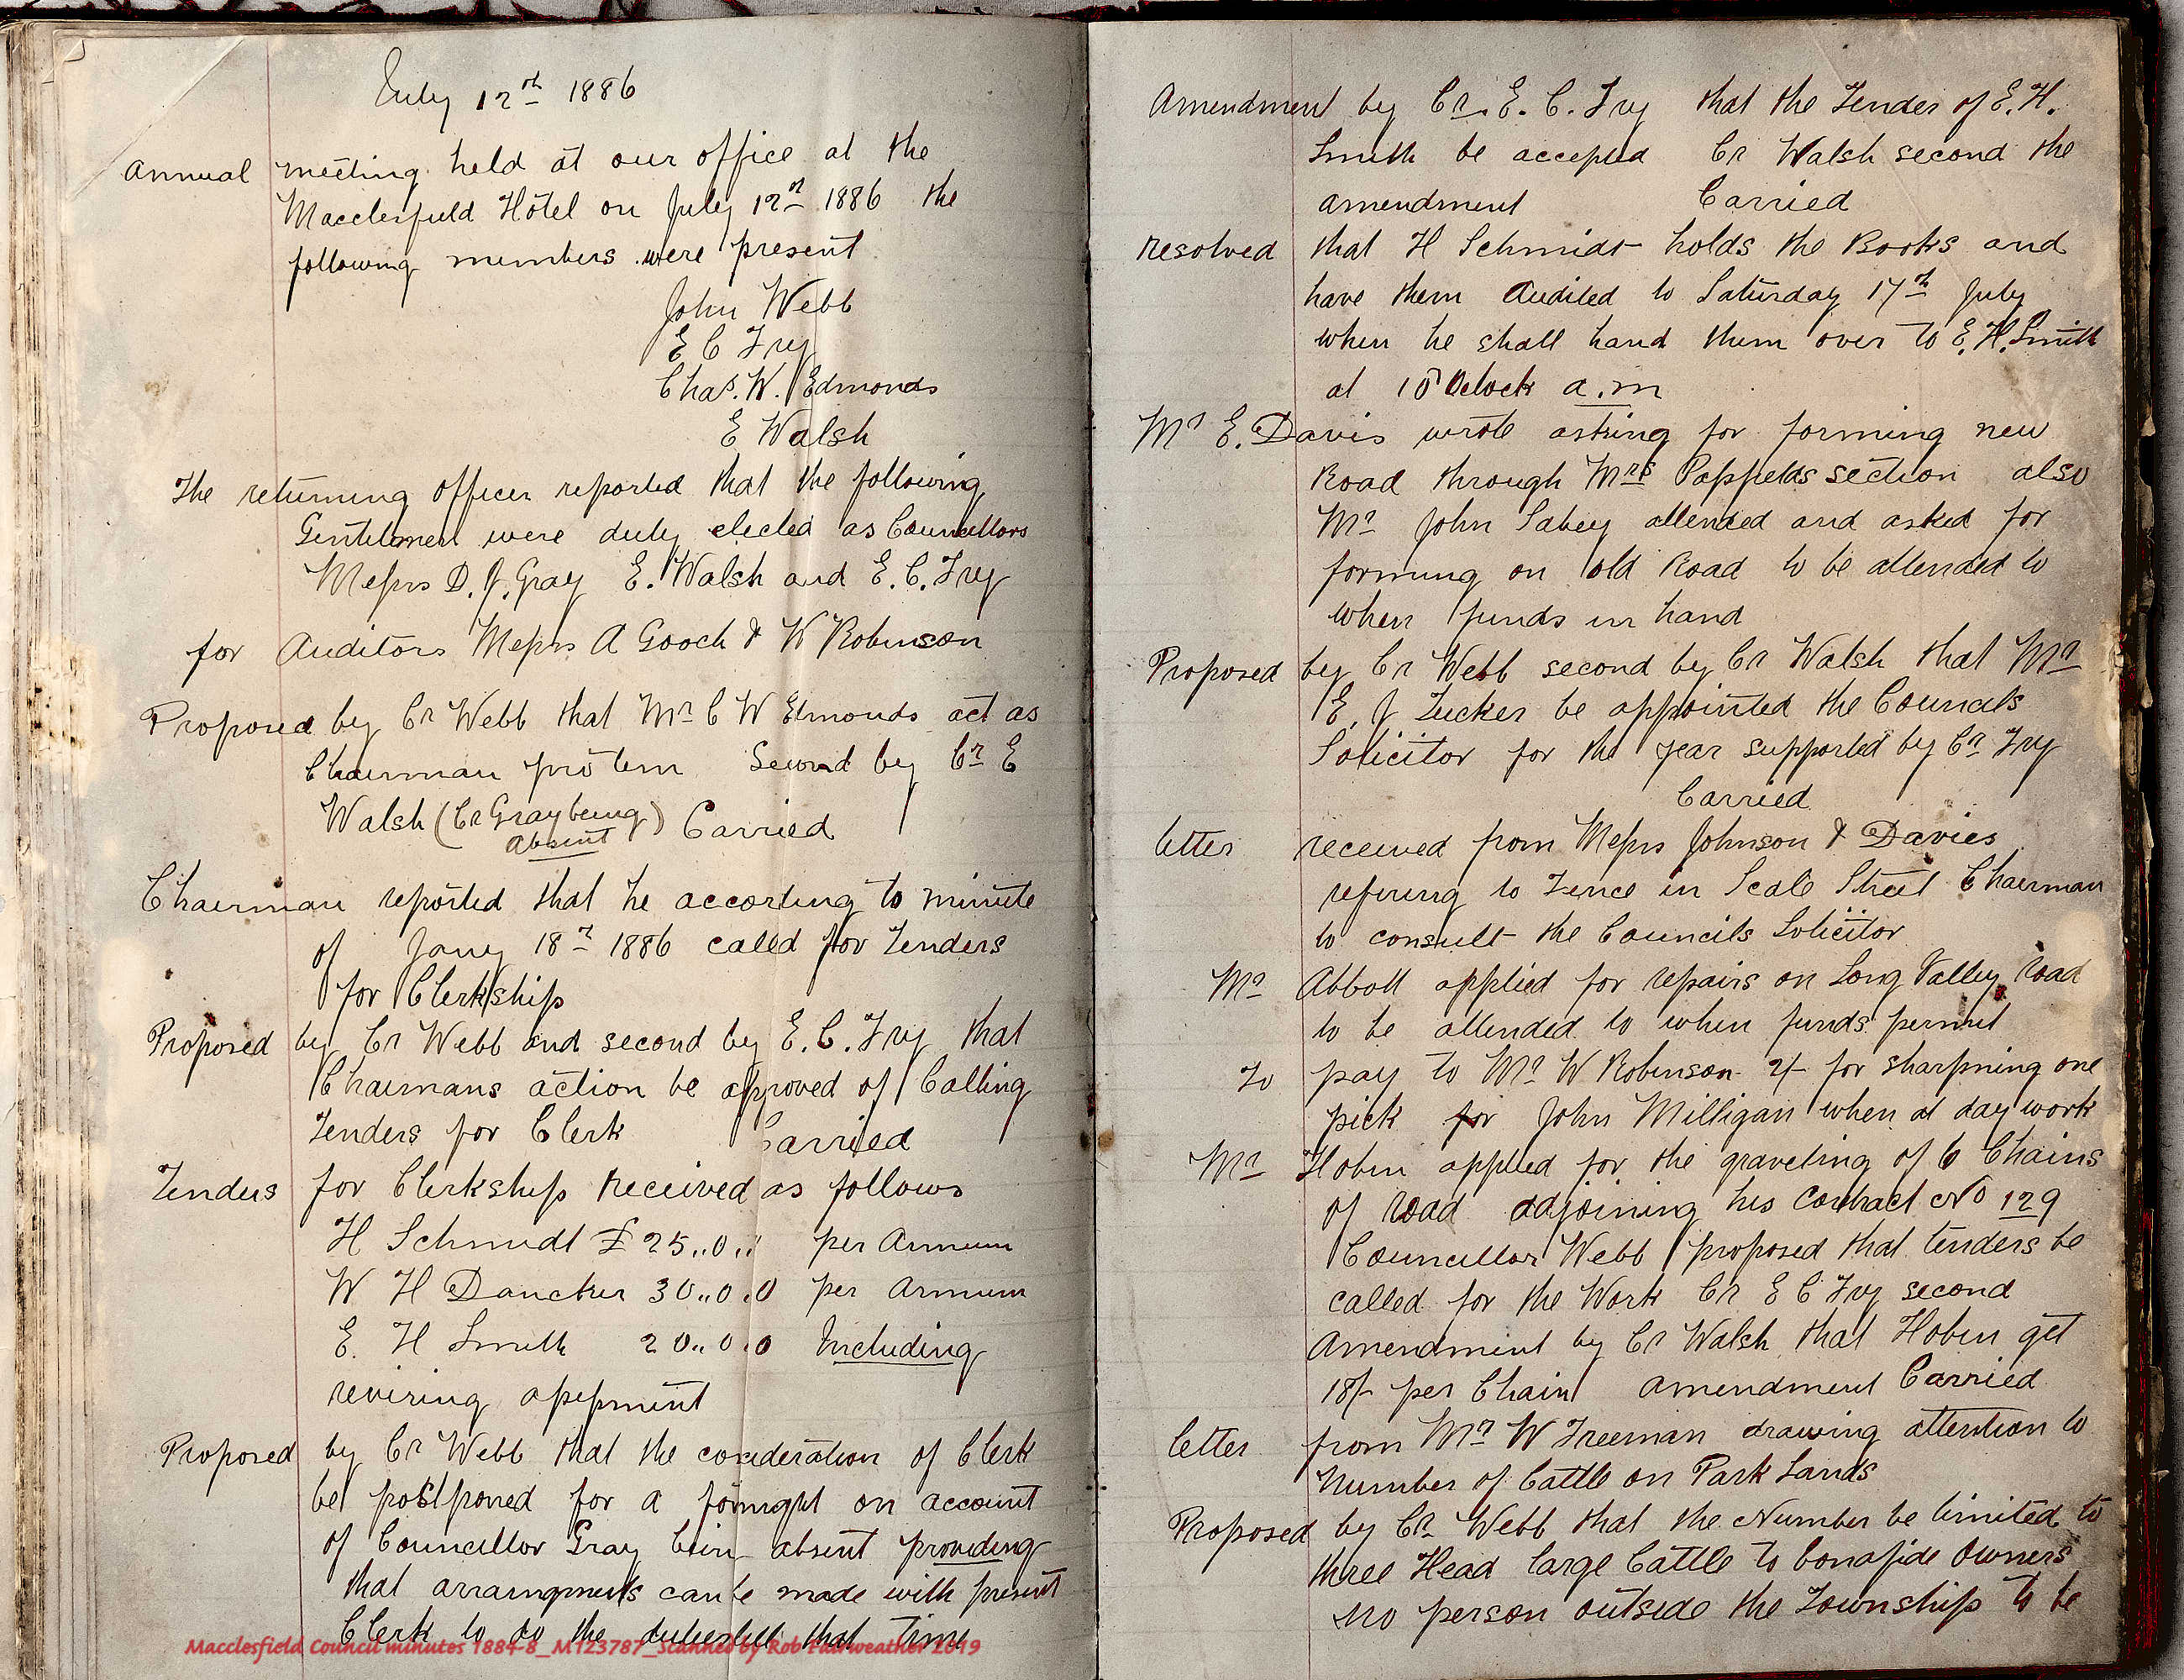 July 12th 1886
Annual meeting held at our office at the
Macclesfield Hotel on July 12th 1886 the
following members were present
John Webb
E C Fry
Chas. W. Edmonds
E Walsh
The returning officer reported that the following
Gentlemen were duly elected as Councillors
Messrs D. J. Gray E. Walsh and E. C. Fry
for Auditors Messrs A Gooch & W Robinson
Proposed by Cr Webb that Mr C W Edmonds act as
Chairman pro tem Second by Cr E
Walsh (Cr Gray being
absent) Carried
Chairman reported that he according to minute
of Jany 18th 1886 called for Tenders
for Clerkship
Proposed by Cr Webb and second by E. C. Fry that
Chairmans action be approved of Calling
Tenders for Clerk Carried
Tenders for Clerkship received as follows
H Schmidt £25..0.. per Annum
W H Dancker 30..0.0 per Annum
E. H Smith 20..0.0 Including
revising assessment
Proposed by Cr Webb that the consideration of Clerk
be postponed for a fornight on account
of Councillor Gray bein absent providing
that arrangments can be made with present
Clerk to do the duties till that time
Macclesfield Council minutes 1884-8_M123787_Scanned by Rob Fairweather 2019
Amendment by Cr. E. C. Fry that the Tender of E. H.
Smith be accepted Cr Walsh second the
amendment Carried
resolved that H Schmidt holds the Books and
have them Audited to Saturday 17th July
when he shall hand them over to E. H. Smith
at 10 Oclock a.m
Mr E. Davis wrote asking for forming new
Road through Mrs section also
Mr John Sabey attended and asked for
forming on old Road to be attended to
when funds in hand
Proposed by Cr Webb second by Cr Walsh that Mr
E. J Tucker be appointed the Councils
Solicitor for the year supported by Cr Fry
Carried
letter received from Messrs Johnson & Davies
refering to Fence in Scale Street Chairman
to consult the Councils Solicitor
Mr Abbott applied for repairs on Long Valley road
to be attended to when funds permit
To pay to Mr W Robinson 2/- for sharpning one
pick for John Milligan when at day work
Mr Hobin applied for the graveling of 6 Chains
of road adjoining his Contract No 129
Councillor Webb proposed that tenders be
called for the Work Cr E C Fry second
Amendment by Cr Walsh that Hobin get
18/- per Chain amendment Carried
letter from Mr W Freeman drawing attention to
number of Cattle on Park Lands
Proposed by Cr Webb that the Number be limited to
three Head large Cattle to bonafide Owners
no person outside the Township to be